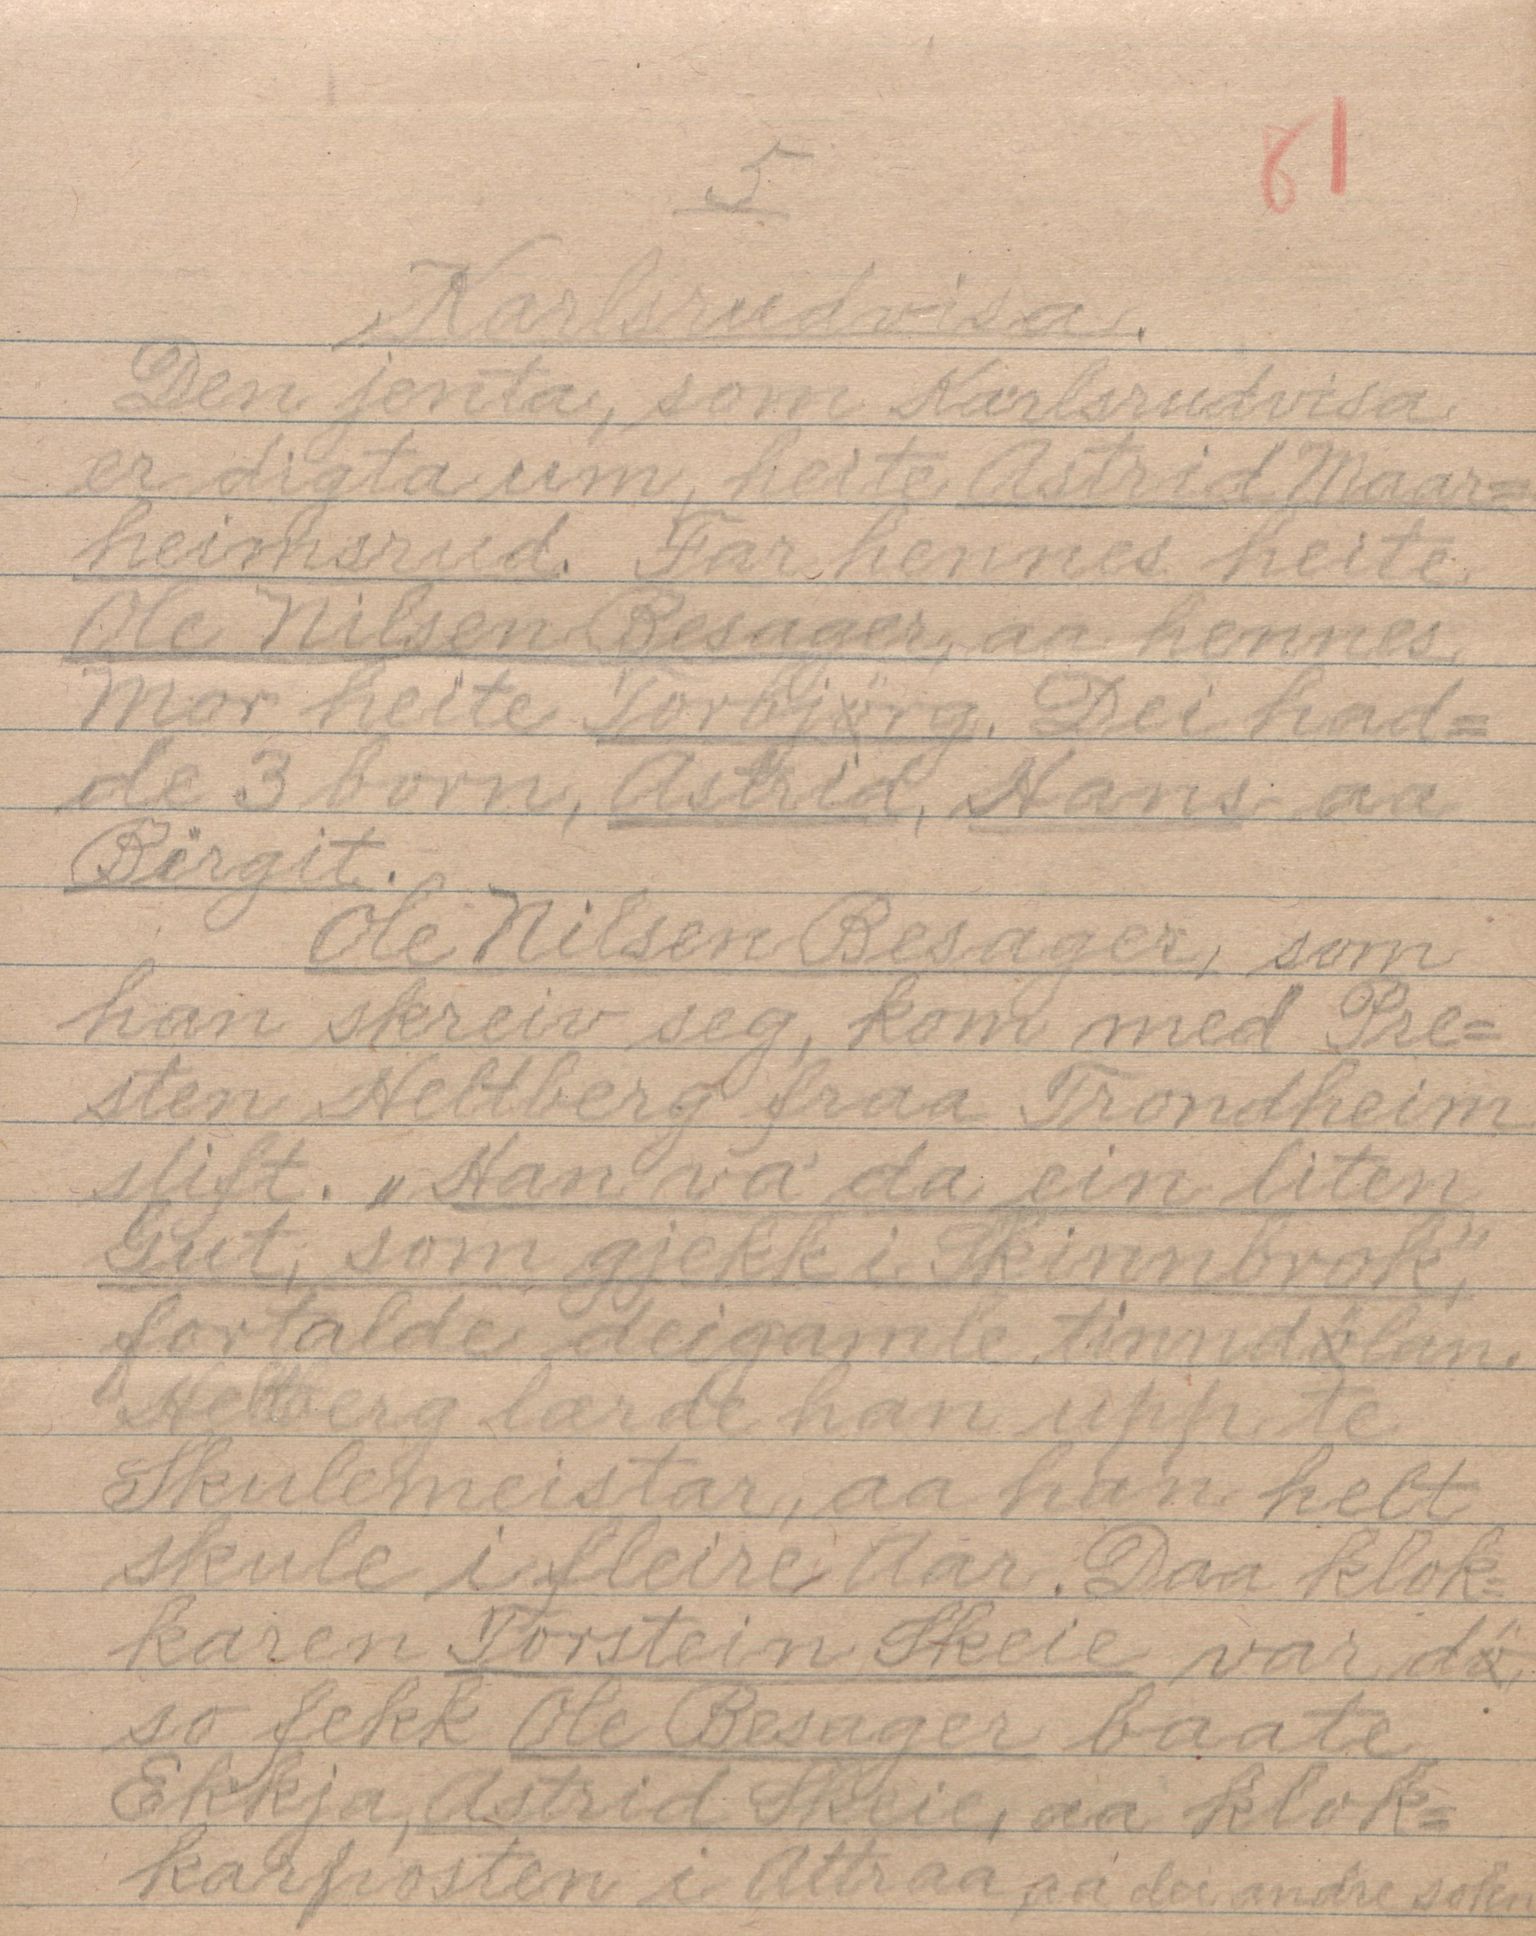 61
5
Karlsrudvisa.
Den jenta, som Karlsrudvisa
er digta um, heite Astrid Maar=
heimsrud. Far hennes heite
Ole Nilsen Besager, aa hennes
Mor heite Torbjörg. Dei had=
de 3 born, Astrid, Hans aa
Birgit.
Ole Nilsen Besager, som
han skreiv seg, kom med Pre=
sten Heltberg fraa Trondheim
stift. „Han va da ein liten
Gut, som gjekk i Skinnbrok",
fortalde dei gamle tinndölan.
Heltberg lærde han upp te
Skulemeistar, aa han helt
skule i fleire Aar. Daa klok=
karen Torstein Skeie var dö,
so fekk Ole Besager baate
Ekkja, Astrid Skeie, aa klok=
karposten i Attraa aa dei andre soken